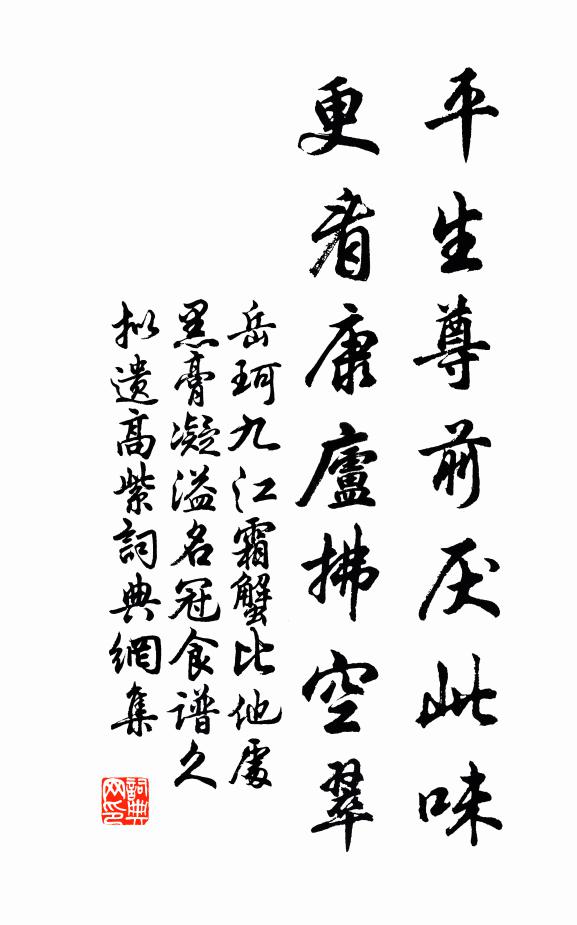 平生尊前厌此味
更看康廬拂空翠
岳珂九江霜蟹比他處
黑膏凝溢名冠食谱久
拟遗高紫詞典網集
詞典网印